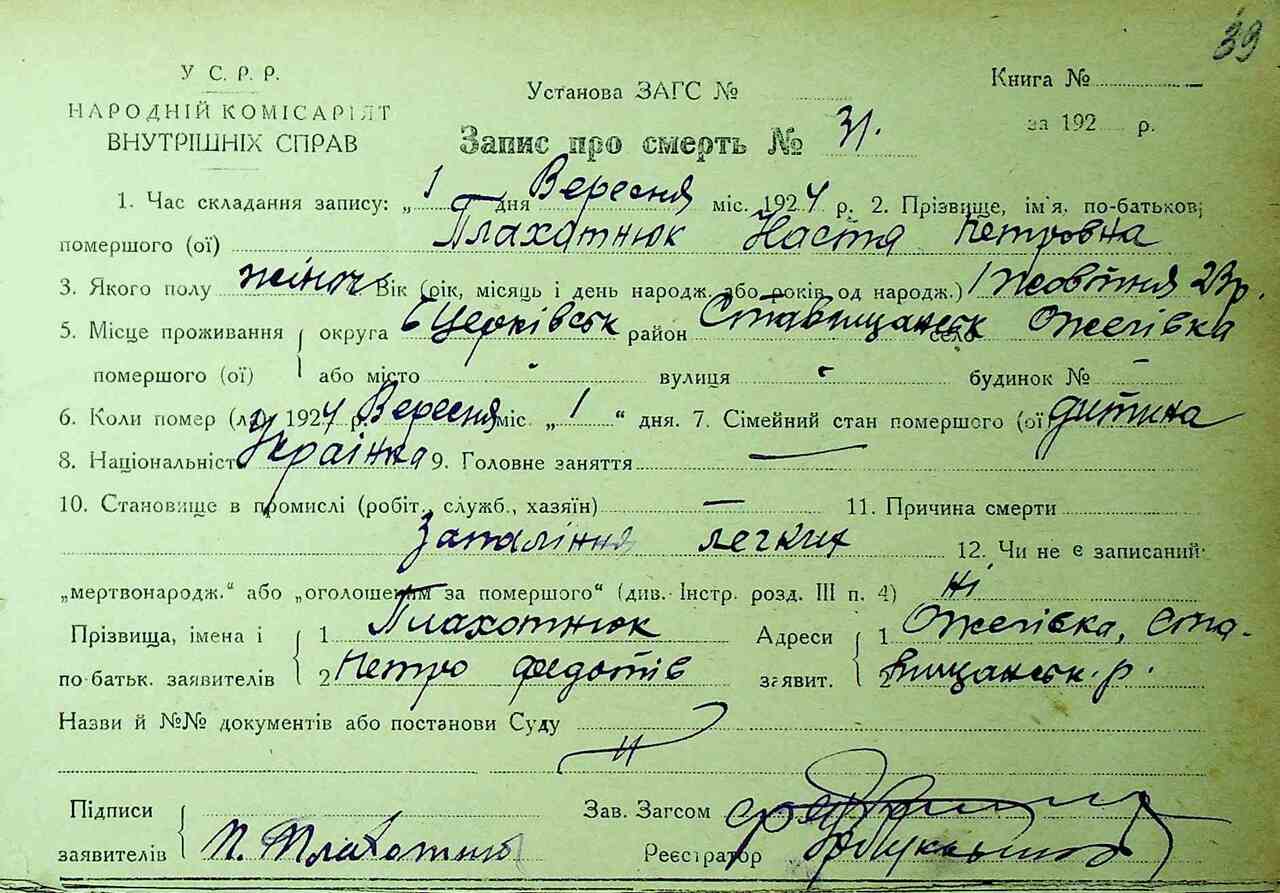 39
У С. Р. Р.
НАРОДНІЙ КОМІСАРІЯТ
ВНУТРІШНІХ СПРАВ
Установа ЗАГС №
Книга №
за 192 р.
Запис про смерть № 31.
1. Час складання запису: „ 1 дня Вересня міс. 1924 р. 2. Прізвище, ім'я, по-батькові
помершого (ої) Плахотнюк Настя Петровна
3. Якого полу жіноч Вік (рік, місяць і день народж. або років од народж.) 1 Жовтня 23р.
5. Місце проживання округа БЦерківськ район Ставищанськ село Ожегівка
помершого (ої) або місто - вулиця - будинок № -
6. Коли помер (ла) 1924 р. Вересня міс. „ 1 “ дня. 7. Сімейний стан помершого (ої) дитина
8. Національність Українка 9. Головне заняття —
10. Становище в промислі (робіт., служб., хазяїн) — 11. Причина смерти
Запаління легких 12. Чи не є записаний
„мертвонародж.“ або „оголошеним за помершого“ (див. Інстр. розд. III п. 4) ні
Прізвища, імена і 1 Плахотнюк Адреси 1 Ожегівка, Ста-
по-батьк. заявителів 2 Петро Федотів заявит. 2 вищанськ. р.
Назви й №№ документів або постанови Суду
Підписи Зав. Загсом
заявителів П. Плахотнюк Реєстратор